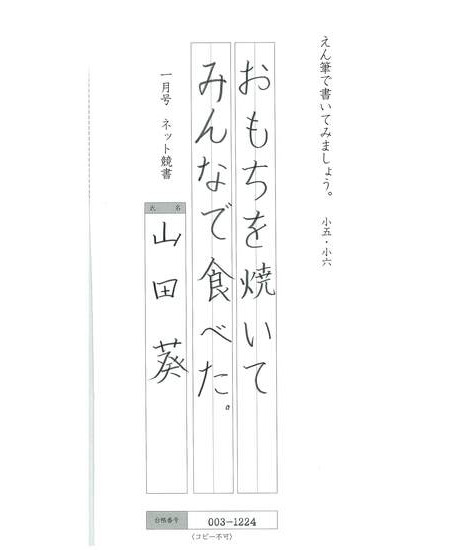 えん筆で書いてみましょう。　小五・小六
おもちを焼いて
みんなで食べた。
一月号　ネット競書
氏名
山田葵
台帳番号　003-1224
(コピー不可)